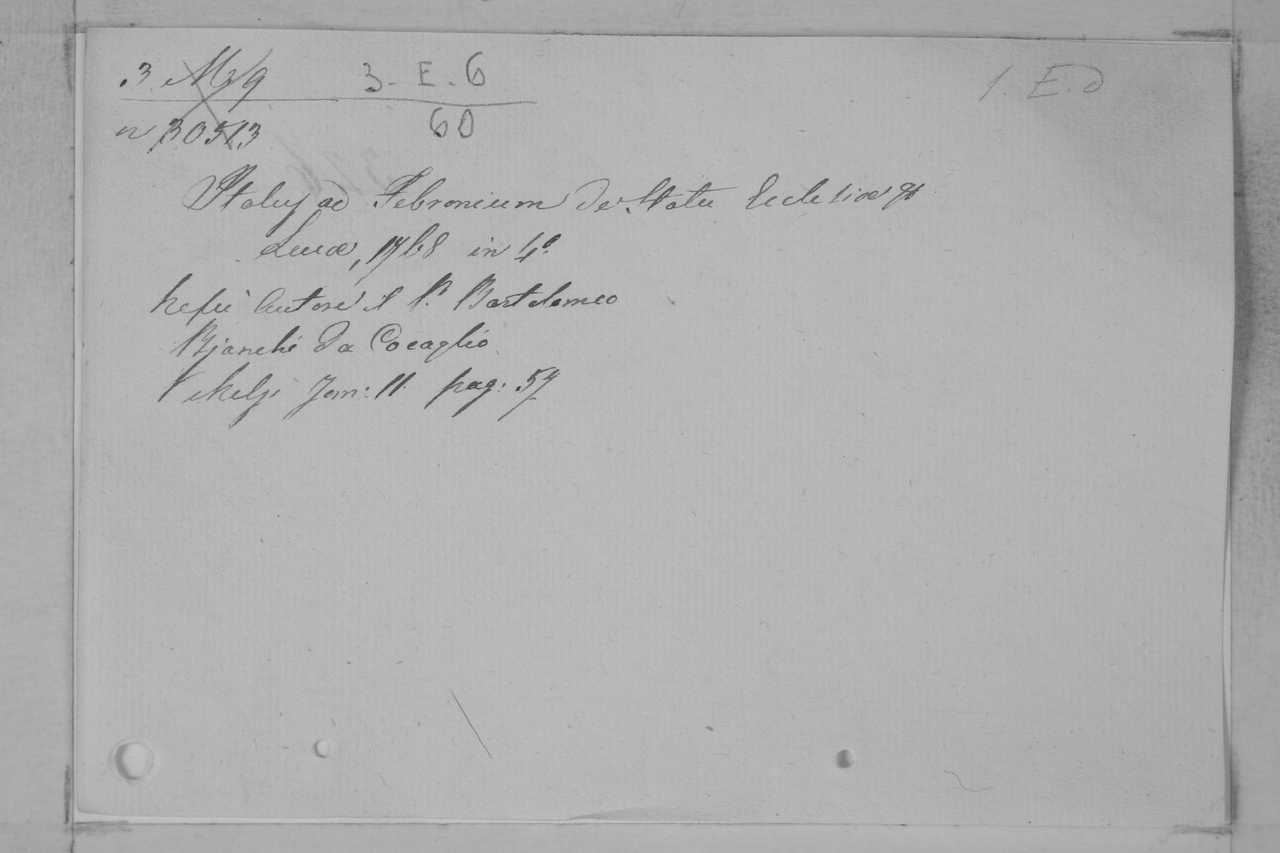 3. M. 9 3 - E - 6 1. E. d
n 30513 60
Italus ad Febronium de Statu Ecclesiæ
Lucæ, 1768 in 4º
Ne fu autore il P. Bartolomeo
Bianchi da Cocaglio
V Melzi Tom: II. pag: 57